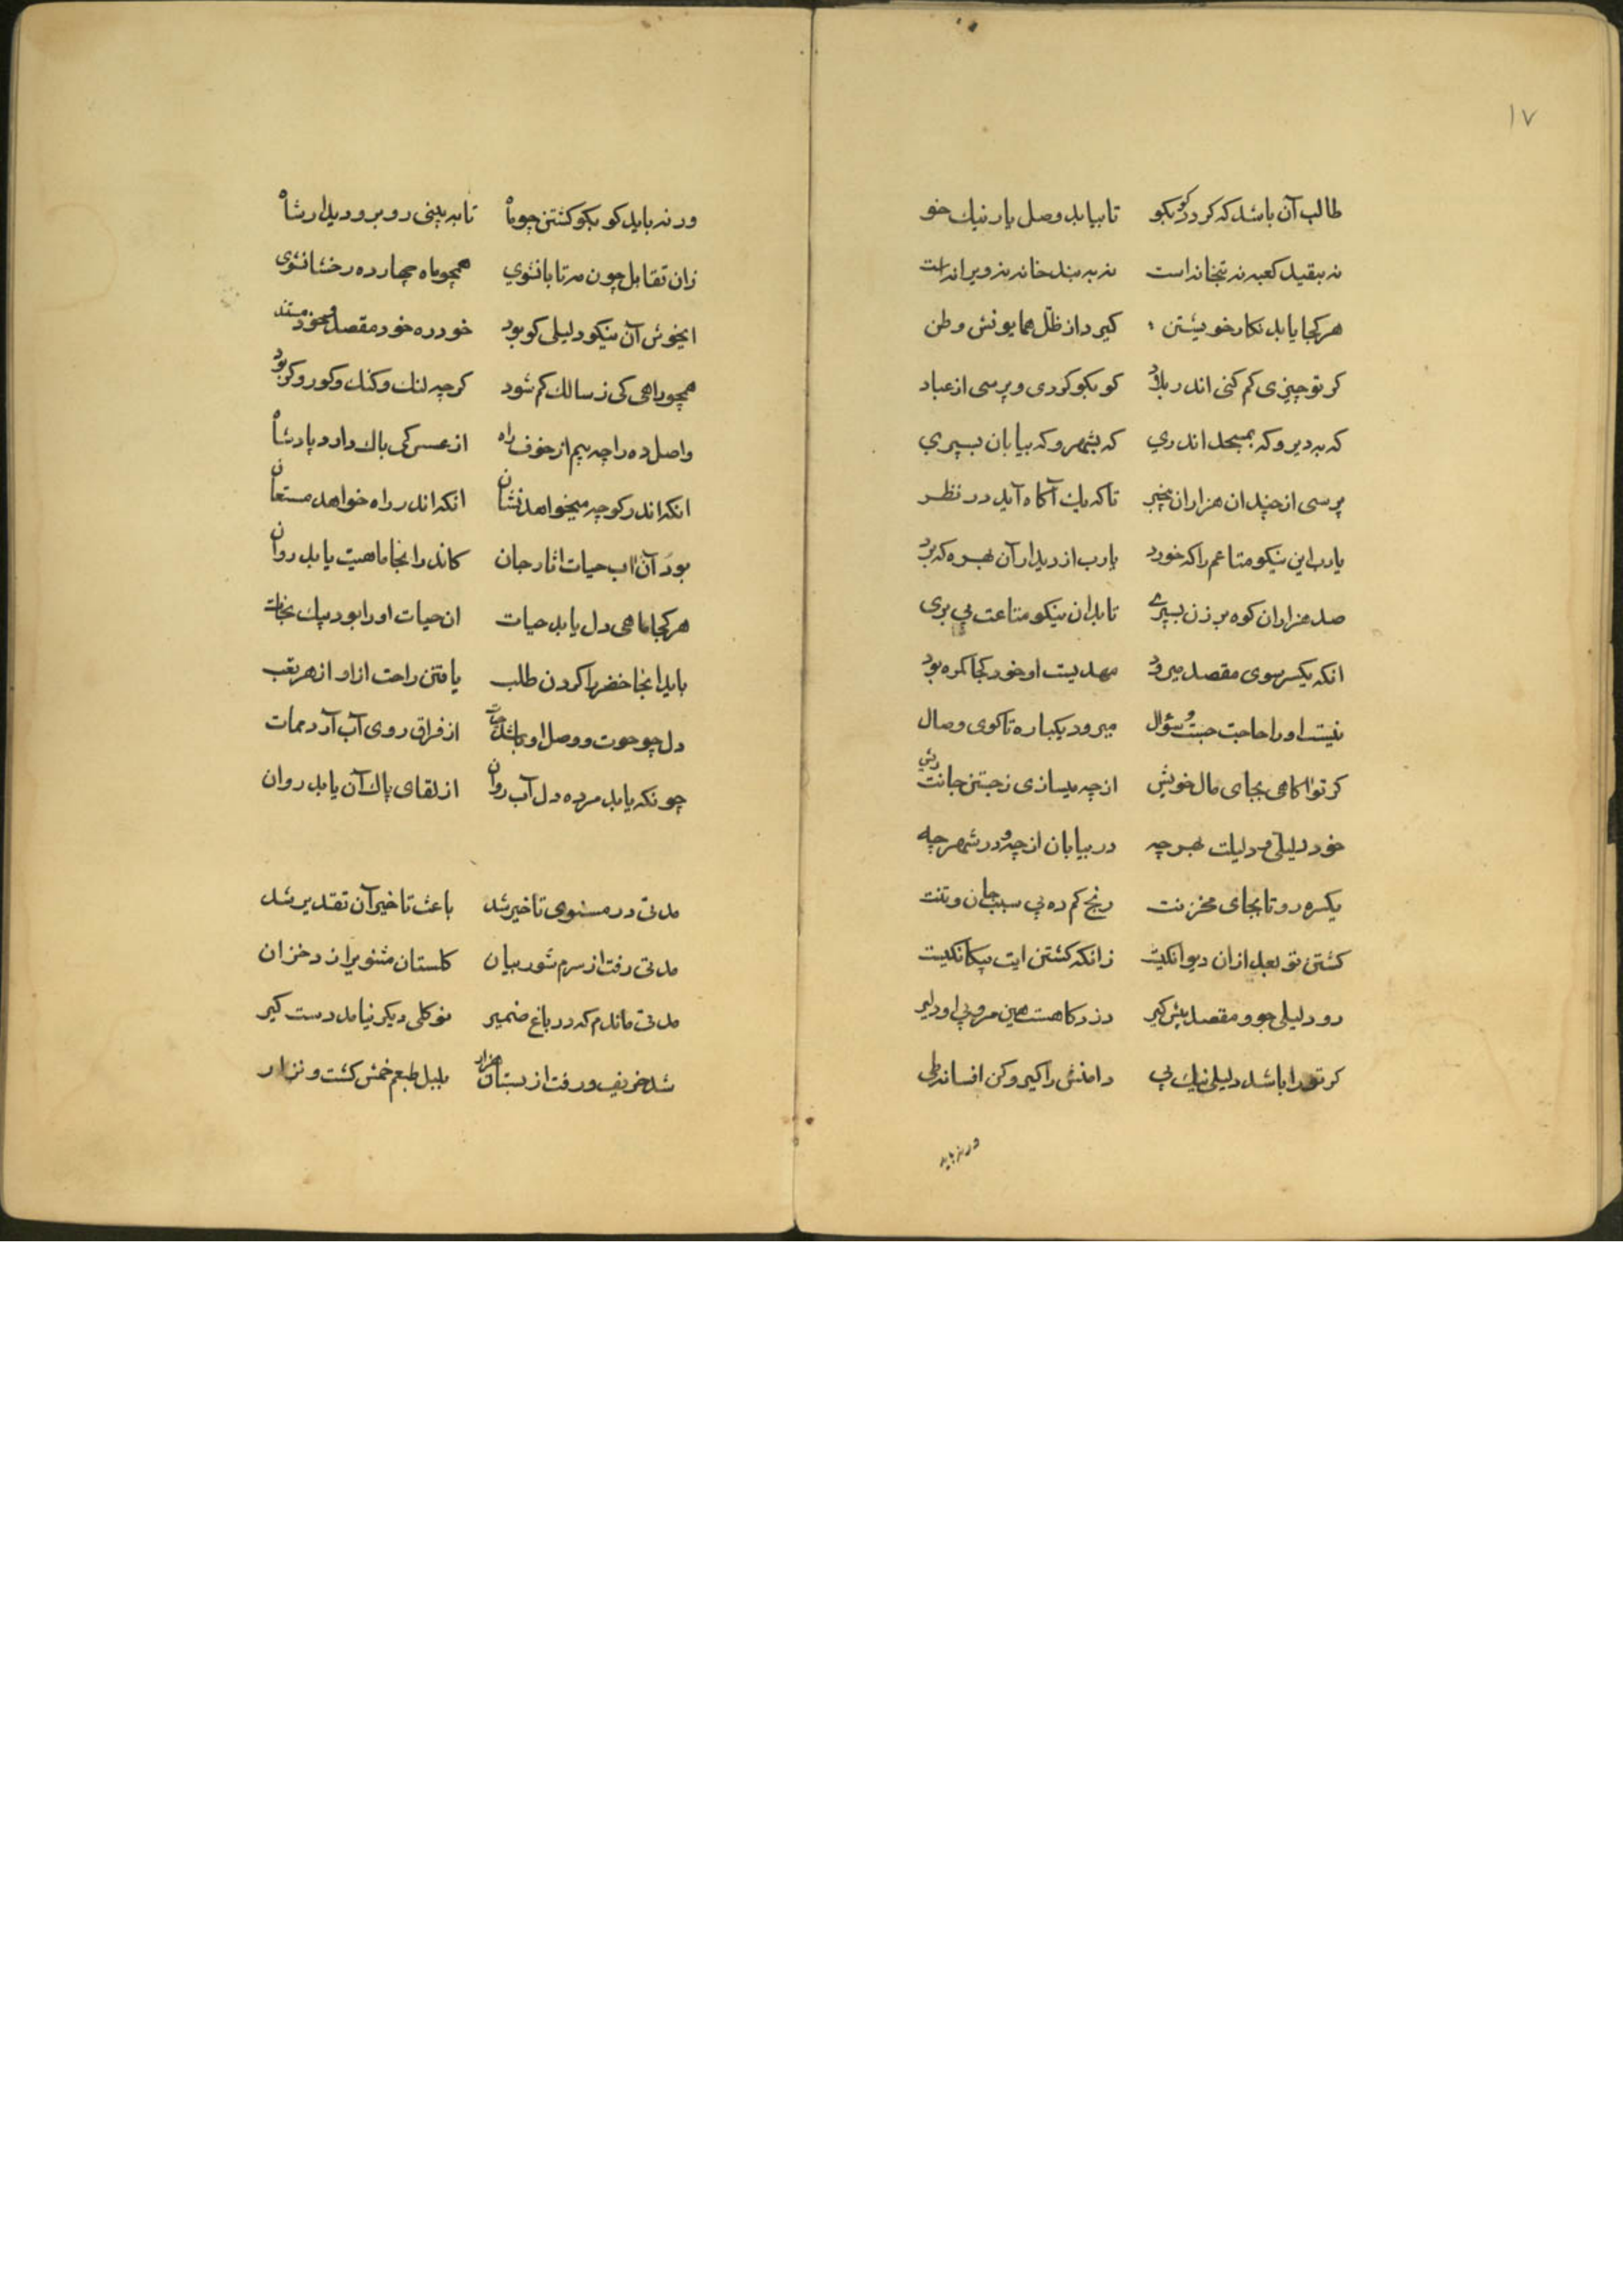 ۱۷
طالب آن باشد که کردد کو بکو تا بیابد وصل یار نیك خو
نه بقید کعبه نه بتخانه است نه به بند خانه نه ویرانه است
هر کجا یابد نکار خویشتن کیرد از ظلّ همایونش وطن
کر تو چیزی کم کنی اندر بلاد کو بکو کردی و پرسی از عباد
که به دیر و که بمسجد اندری که بشهر و که بیابان بسپری
پرسی از چندان هزاران بیخبر تا که یك آکاه آید در نظر
یا رب این نیکو متاعم را که خورد یا رب از دیدار آن بهره که برد
صد هزاران کوه برزن بسپرے تا بدان نیکو متاعت پی بری
انکه یکسر سوی مقصد میرود مهدیست او خود کجا کمره بود
نیست او را حاجت جست و سؤال میرود یکباره تا کوی وصال
کر تو اکاهی بجای مال خویش از چه میسازی ز جستن جانت ریش
خود دلیلی و دلیلت بهر چه در بیابان از چه و در شهر چه
یکسره رو تا بجای مخزنت رنج کم ده بی سبب جان و تنت
کشتن تو بعد از ان دیوانکیت زانکه کشتن ایت بیکانکیت
رو دلیلی جو و مقصد پیش کیر درد کاهست هین مرو بی او دلیر
کر تو را باشد دلیلی نیك پی دامنش را کیر و کن افسانه طی
ور نه باید
ور نه باید کو بکو کشتن چو ماه تا به بینی رو برو دیدار شاه
زان تقابل چون مه تابان شوی همچو ماه چهارده رخشان شوی
ایخوش آن نیکو دلیلی کو بود خود ره خود مقصد و خود مستند
همچو راهی کی ز سالك کم شود کر چه لنك و کنك و کور و کر بود
واصل ده را چه بیم از خوف راه از عسس کی باك دارد پادشاه
انکه اندر کوچه میخواهد نشان انکه اندر راه خواهد مستعان
بود آن آب حیات اثار جان کاندر انجا ماهیت یابد روان
هر کجا ماهی دل یابد حیات ان حیات او را بود پیك نجات
باید انجا خضر را کردن طلب یافتن راحت از او از هر تعب
دل چو حوت و وصل او باشد حیات از فراق روی آب آرد ممات
چونکه یابد مرده دل آب روان از لقای پاك آن یابد روان
مدتی در مسنوی تاخیر شد باعث تاخیر آن تقدیر شد
مدتی رفت از سرم شور بیان کلستان مثنوی را زد خزان
مدتی ماندم که در باغ ضمیر نو کلی دیکر نیامد دست کیر
شد خریف و رفت از بستان هزار بلبل طبعم خمش کشت و نزار